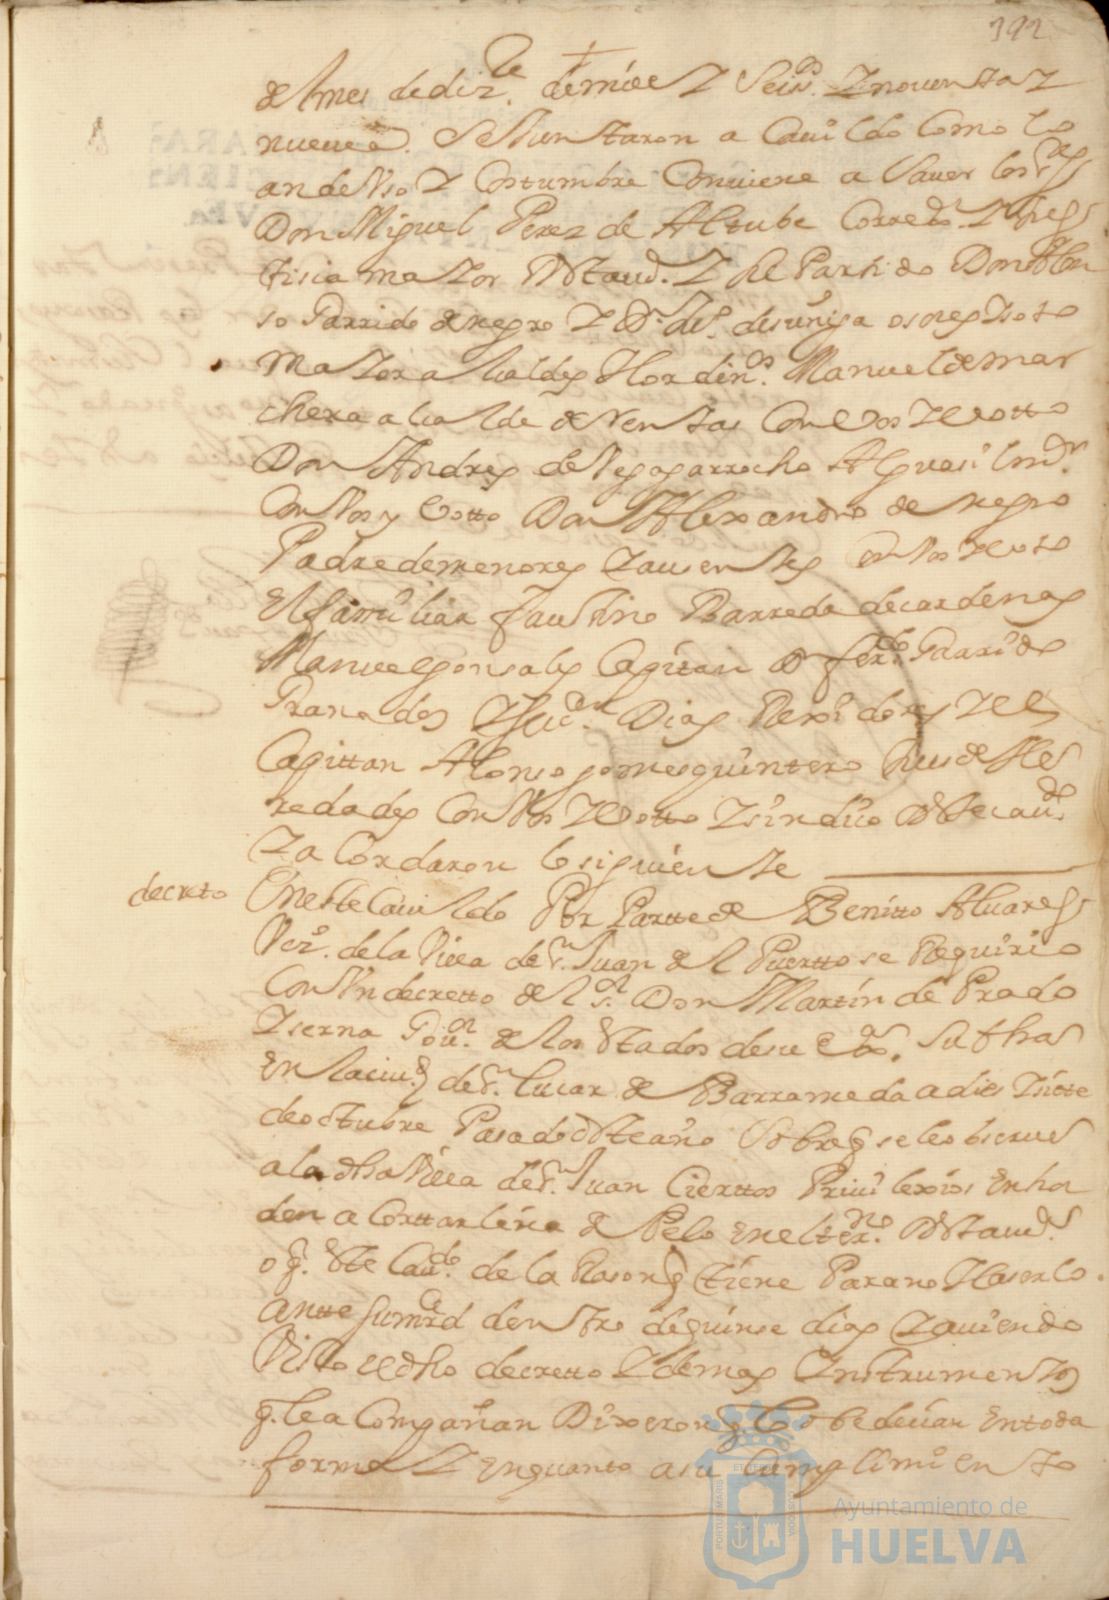 192
del mes de diz.re de mil y seis.os y nouenta y
nueue. Se Juntaron a Cauildo como lo
an de Vso y Costumbre Conuiene a Sauer los s.res
Don Miguel Perez de Altube Corred.or y Jus
tisia maior desta ui.d y su Partido Don Alon
so Garrido de negro y D.n
maior alcaldes Hordin.os Manuel de mar
chena alcalde de Ventas Con Vos y Votto
Don Andres de Vega garrocho Alguasil m.or
Con Vos y Votto Don Alexandro de negro
Padre de menores y ausentes Con Vos y Voto
El familiar faustino Barreda de cardenas
Manuel gonsales Capitan D. fer.do Garrido
Granados y Ju.o Dias Rexidores y el
Capittan Alonso gomes quintero Jues de He
redades Con Vos y Votto y sindico deste cau.do
y acordaron lo siguiente
decreto
En este Cauildo Por Partte de Benitto Aluares
Vez.o de la Villa de S.n Juan del Puertto se Requirio
Con Vn decretto del s.or Don Martin de Prado
y serna Gou.or de los Estados de su ex.a Su fha
En la ciu.d de S.n lucar de Barrameda a dies y siette
de octubre Pasado deste año Sobre q se le obserue
a la dha Villa de S.n Juan Ciertos Priuilexios En hor
den a Corttar leña de Pelo en el ter.no desta ui.d
o q. este Cau.do de la Rason q tiene Para no Haserlo
antte su mrd dentro de quinse dias y auiendo
Visto el dho decretto y demas Instrumentos
q. le a Compañan Dixeron q lo obedecian En toda
forma y en quanto a su Cumplimiento
Ayuntamiento de
HUELVA